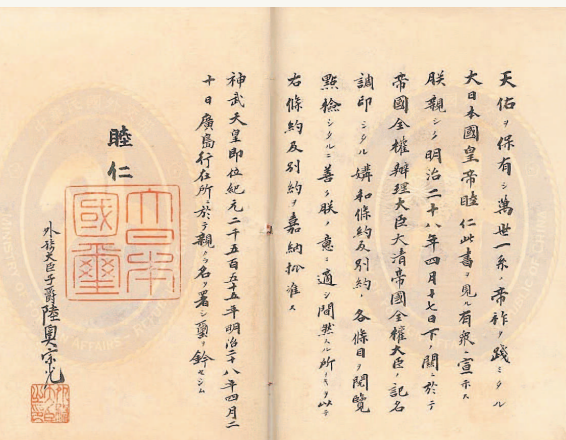 天佑ヲ保有シ萬世一系ノ帝祚ヲ踐ミタル
大日本國皇帝睦仁此書ヲ見ル有衆ニ宣示ス
朕親シク明治二十八年四月十七日下ノ關ニ於テ
帝國全權辨理大臣大清帝國全權大臣ノ記名
調印シタル媾和條約及別約ノ各條目ヲ閲覽
點檢シタルニ善ク朕ノ意ニ適シ間然スル所ナキヲ以テ
右條約及別約ヲ嘉納批准ス
神武天皇即位紀元二千五百五十五年明治二十八年四月二
十日廣島行在所ニ於テ親ラ名ヲ署シ璽ヲ鈐セシム
睦仁
大日本
國璽
外務大臣子爵陸奥宗光